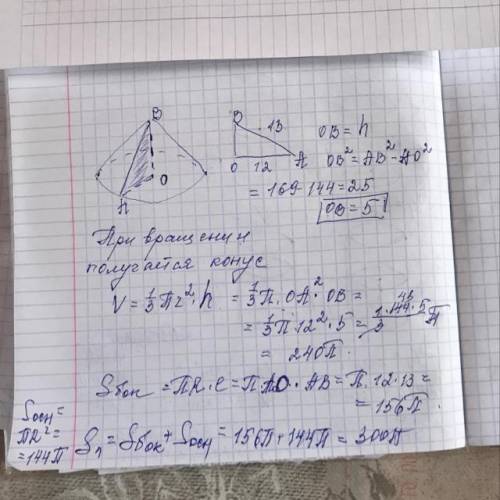 B
O
A
B
13
O 12 A
OB = h
OB² = AB² - AO²
= 169-144 = 25
OB = 5
При вращении
получается конус
V = 1/3 Πr²·h = 1/3 Π·OA²·OB =
= 1/3 Π·12²·5 = 1·144·5/3 Π
48
= 240Π.
Sбок = ΠR·l = ΠAO·AB = Π·12·13 =
= 156Π.
Sосн =
ΠR² =
= 144Π
Sп = Sбок + Sосн = 156Π + 144Π = 300Π